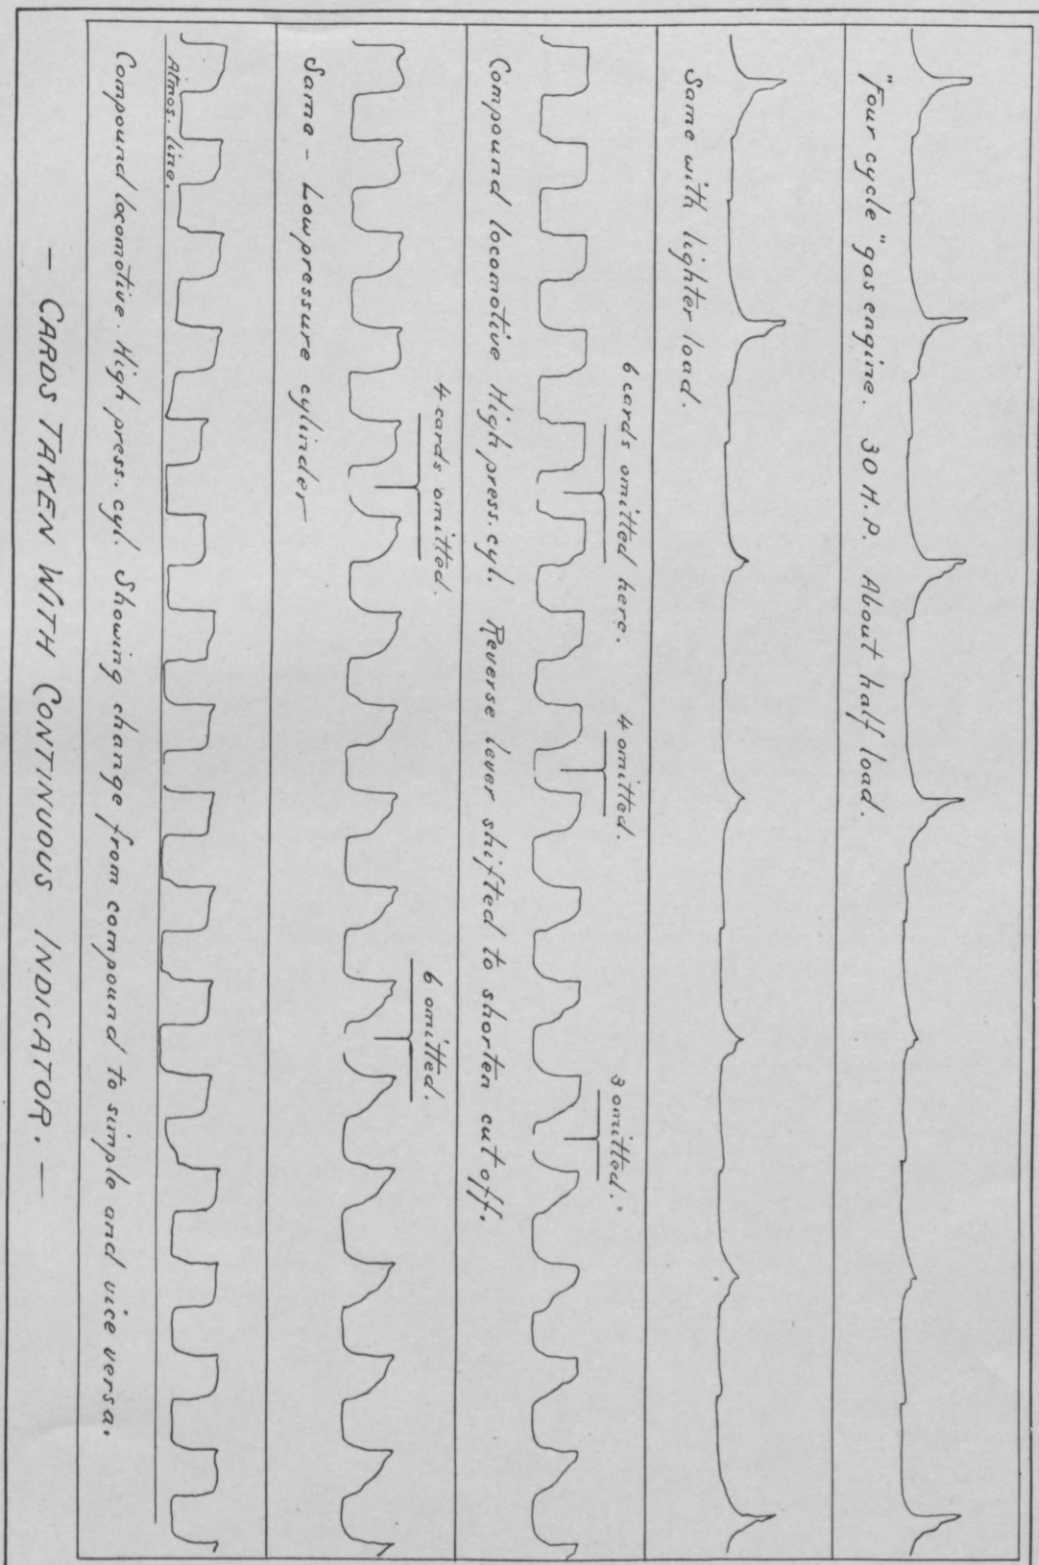 "Four cycle" gas engine. 30 H.P. About half load.
Same with lighter load.
6 cards omitted here.
4 omitted.
3 omitted.
Compound locomotive High press. cyl. Reverse lever shifted to shorten cut off.
4 cards omitted.
6 omitted.
Same - Low pressure cylinder-
Atmos. line.
Compound locomotive. High press. cyl. Showing change from compound to simple and vice versa.
- CARDS TAKEN WITH CONTINUOUS INDICATOR. -